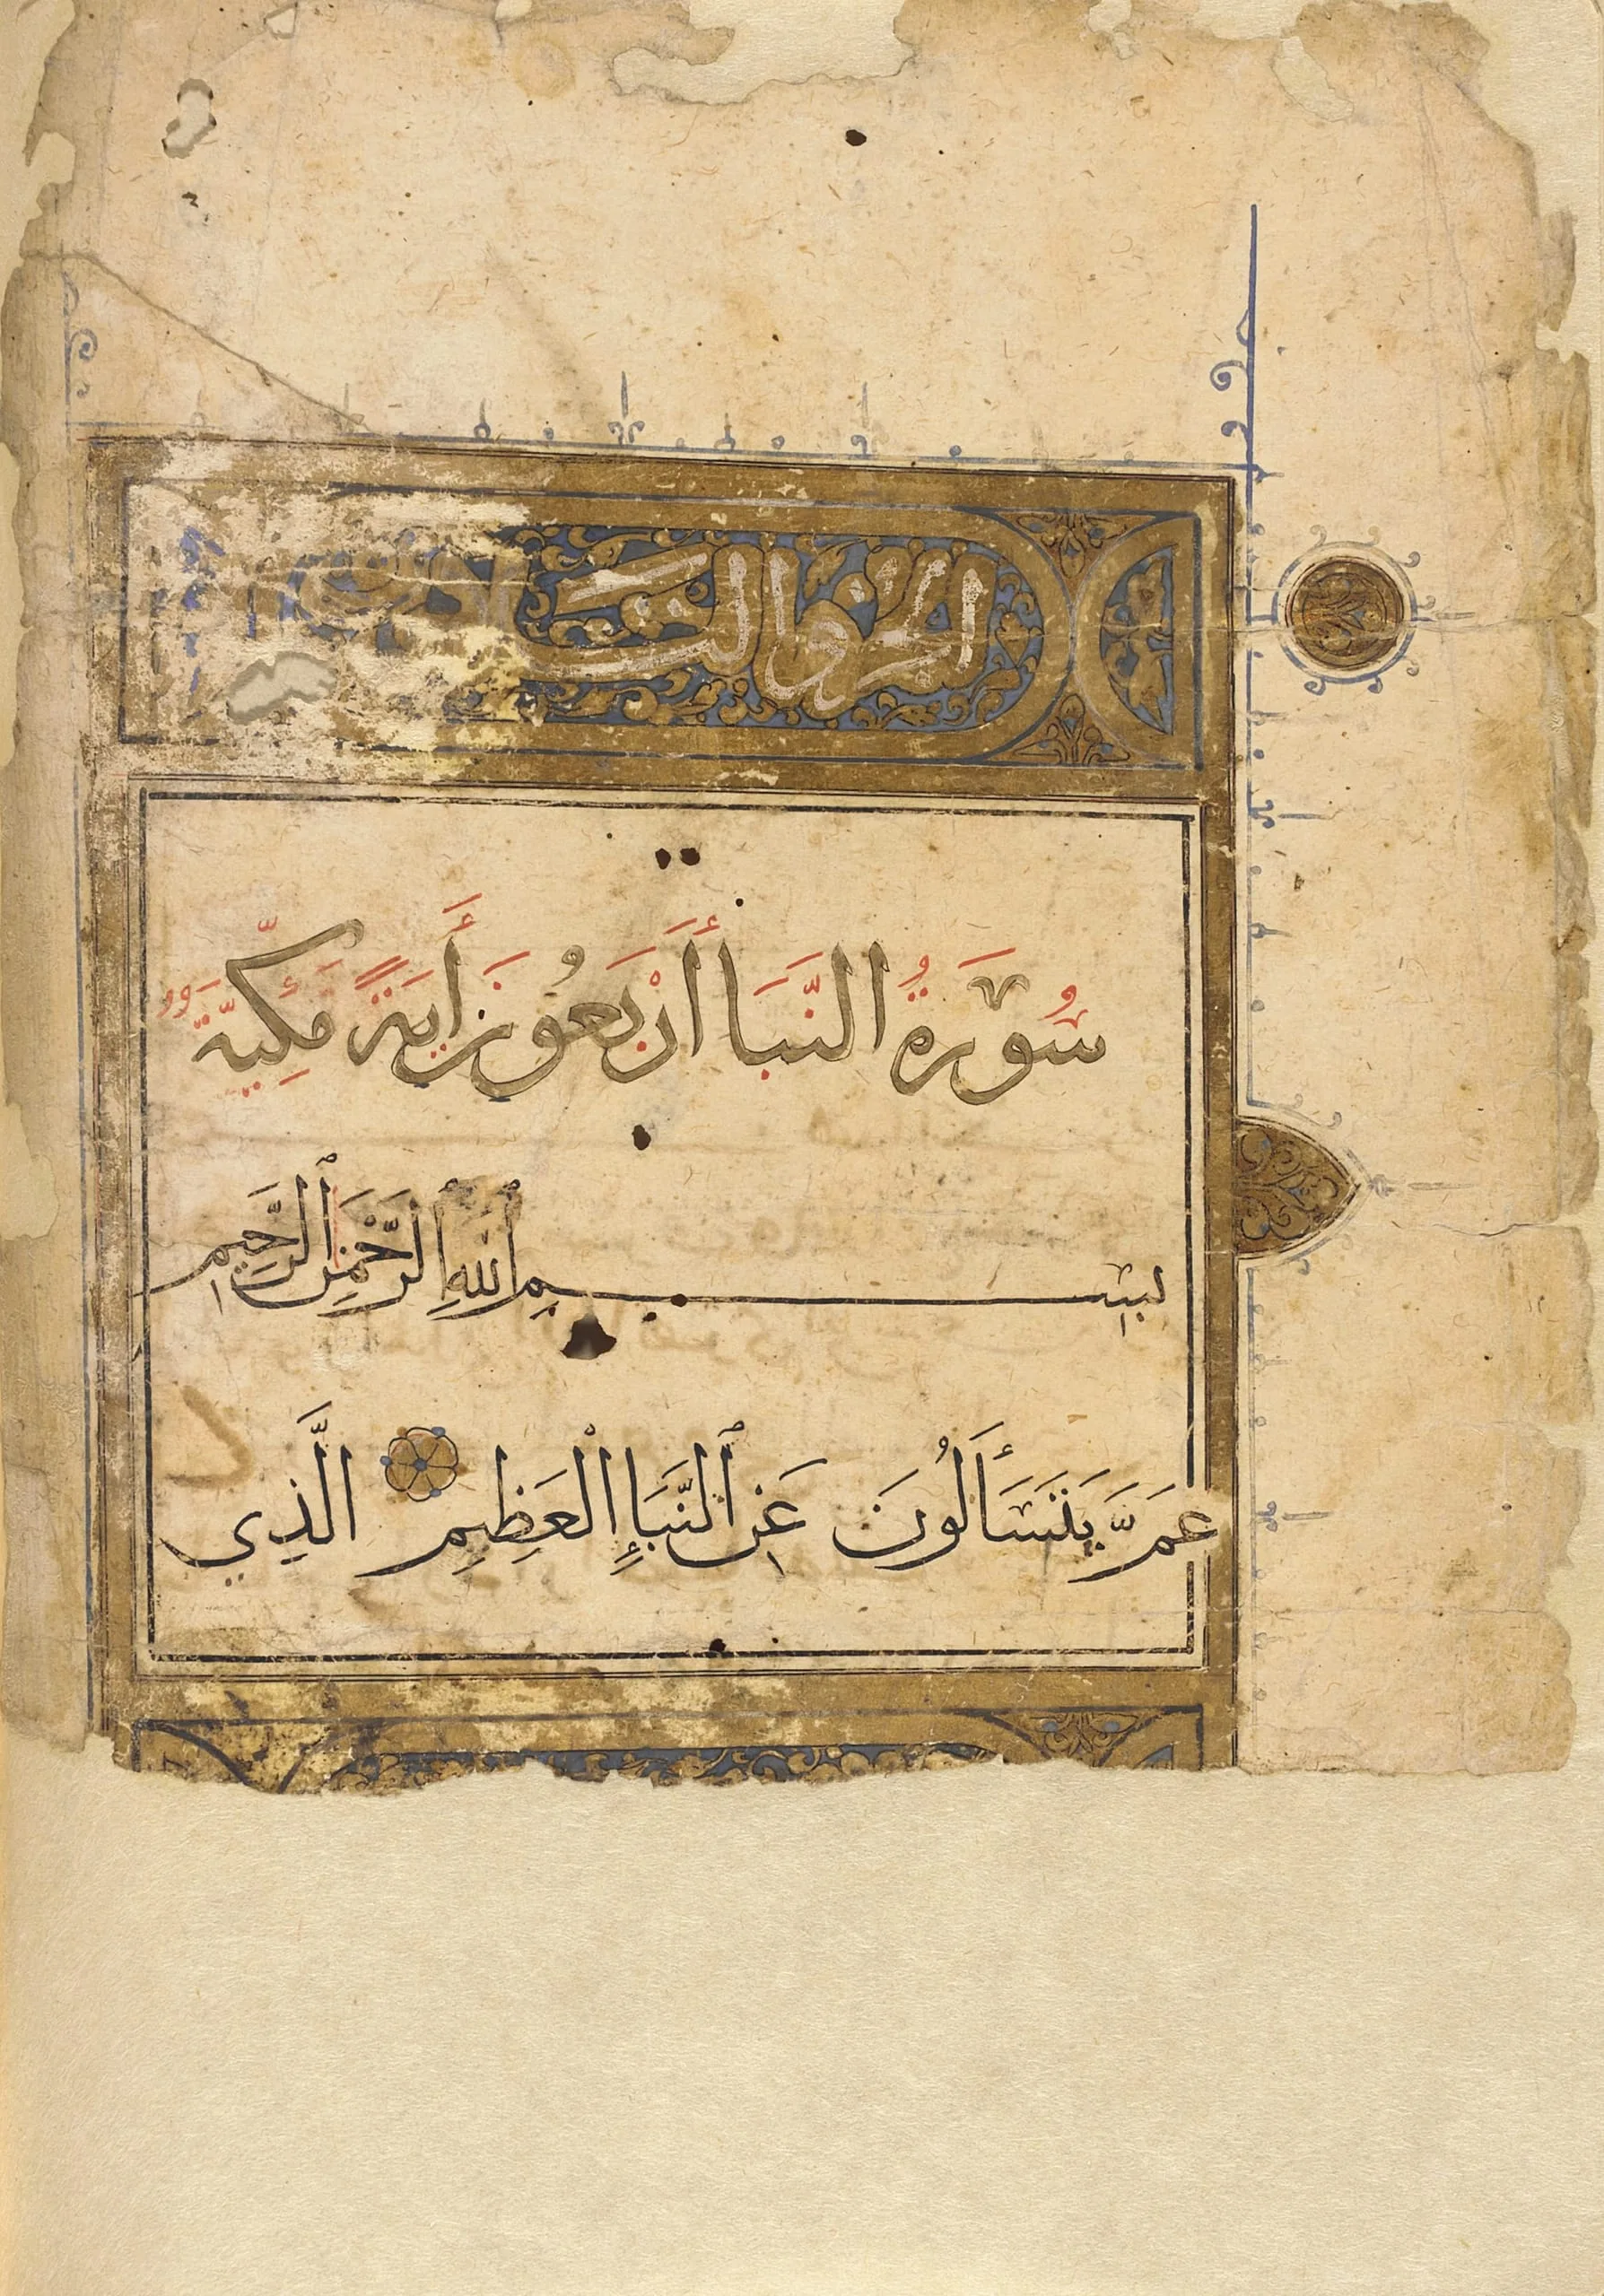 الجزو الثلـ
سُورَةُ النَّبَأ أَرْبَعُونَ أَيَةً مَكِّيَّةٌ
بِسْمِ ٱللهِ ٱلرَّحْمٰنِ ٱلرَّحِيمِ
عَمَّ يَتَسَأَلُونَ عَنِ ٱلنَّبَإِ الْعَظِيمِ الَّذِي